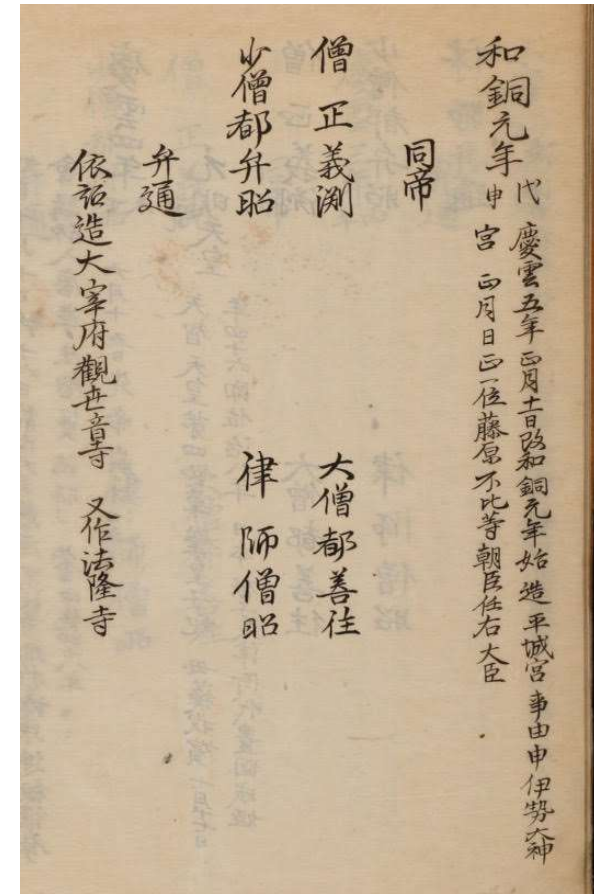 和銅元年
代 慶雲五年正月十一日改和銅元年始造平城宮事由申伊勢大神
申 宮 正月日正一位藤原不比等朝臣任右大臣
同帝
僧正義渕 大僧都善往
少僧都弁昭 律師僧昭
弁通
依詔造大宰府觀世音寺 又作法隆寺